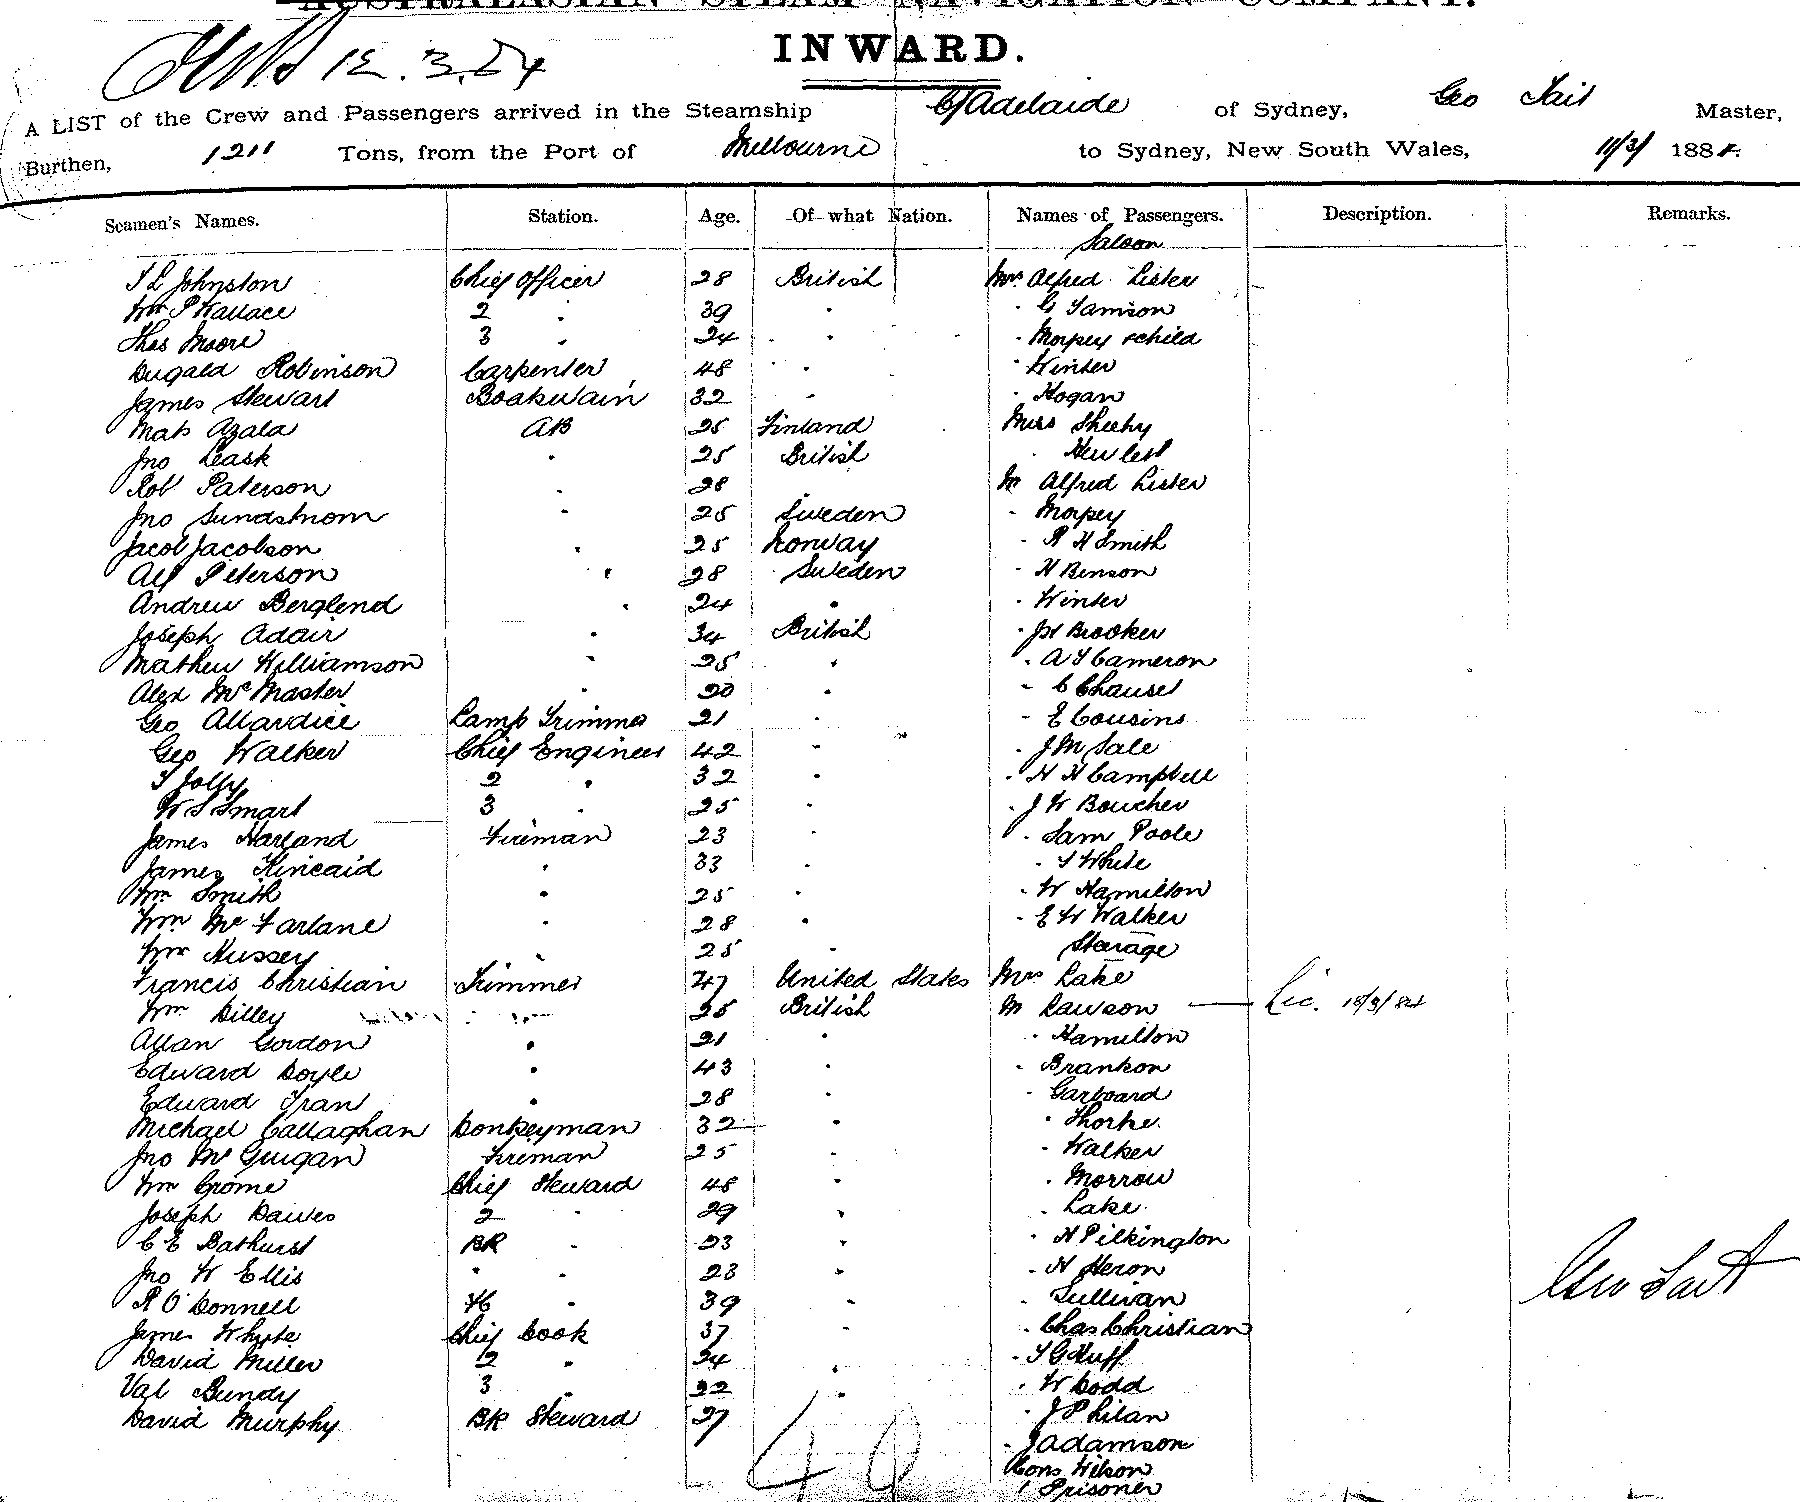 AUSTRALASIAN STEAM NAVIGATION COMPANY.
INWARD.
12.3.84
A LIST of the Crew and Passengers arrived in the Steamship C/Adelaide of Sydney, Geo Tait Master,
Burthen, 1211 Tons, from the Port of Melbourne to Sydney, New South Wales, 11/3/ 1884.
Seamen's Names. Station. Age. Of what Nation. Names of Passengers. Description. Remarks.
Saloon
T L Johnston Chief Officer 28 British Mrs Alfred Lister
Wm P Wallace 2 " 39 " " G Samson
Thos Moore 3 " 24 " " Morpey & child
Dugald Robinson Carpenter 48 " " Winter
James Stewart Boatswain 32 " " Hogan
Mats Azala AB 25 Finland Miss Sheehy
Jno Leask " 25 British Hewlest
Rob Paterson " 28 Mr Alfred Lister
Jno Sundstrom " 25 Sweden " Morpey
Jacob Jacobson " 25 Norway " R H Smith
Alf Peterson " 28 Sweden " H Benson
Andrew Berglend " 24 " " Winter
Joseph Adair " 34 British " Jn Brooker
Mathew Williamson " 25 " " A S Cameron
Alex McMaster " 20 " " C Chausel
Geo Allardice Lamp Trimmer 21 " " E Cousins
Geo Walker Chief Engineer 42 " " J M Sale
T Jolly 2 " 32 " " H H Campbell
W S Smart 3 " 25 " " J W Boucher
James Harland Fireman 23 " " Sam Poole
James Kincaid " 33 " " T White
Wm Smith " 25 " " W Hamilton
Wm McFarlane " 28 " " E W Walker
Wm Hussey " 25 " Steerage
Francis Christian Trimmer 47 United States Mrs Lake
Wm Dilley " 25 British Mr Lawson — Lic. 18/3/84
Allan Gordon " 21 " " Hamilton
Edward Doyle " 43 " " Brankon
Edward Fran " 28 " " Garboard
Michael Callaghan Donkeyman 32 " " Thorpe
Jno McGuigan Fireman 25 " " Walker
Wm Crome Chief Steward 48 " " Morrow
Joseph Dawes 2 " 29 " " Lake
C E Bathurst BR " 23 " " H Pilkington
Jno W Ellis " " 23 " " H Heron
R O'Donnell " 39 " " Sullivan
James Whyte Chief Cook 37 " " Chas Christian
David Miller 2 " 24 " " T G Huff
Val Bundy 3 " 22 " " W Dodd
David Murphy BR Steward 27 " J Philan
" J Adamson
Cons Wilson
1 Prisoner
40
Geo Tait